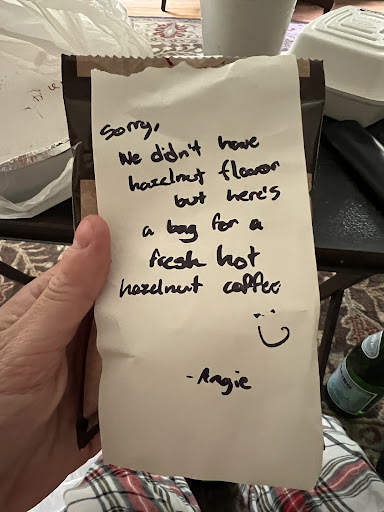 Sorry,
We didn't have
hazelnut flavor
but here's
a bag for a
fresh hot
hazelnut coffee
-Angie